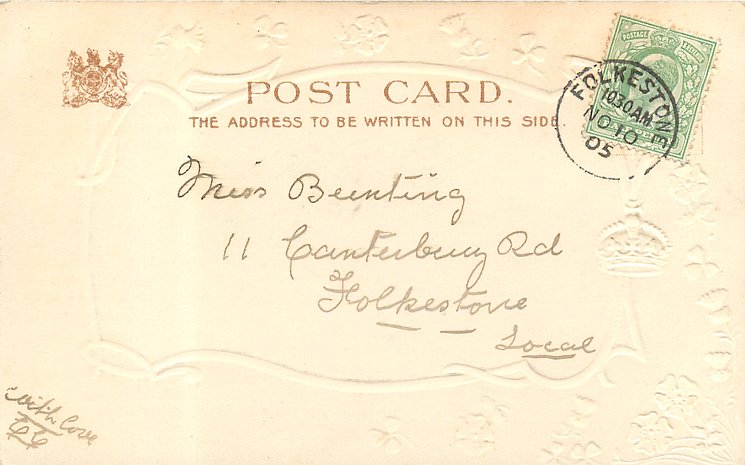 POST CARD.
THE ADDRESS TO BE WRITTEN ON THIS SIDE.
POSTAGE
FOLKESTONE
1030AM
NO 10
05
Miss Bunting
11 Canterbury Rd
Folkestone
Local
with love